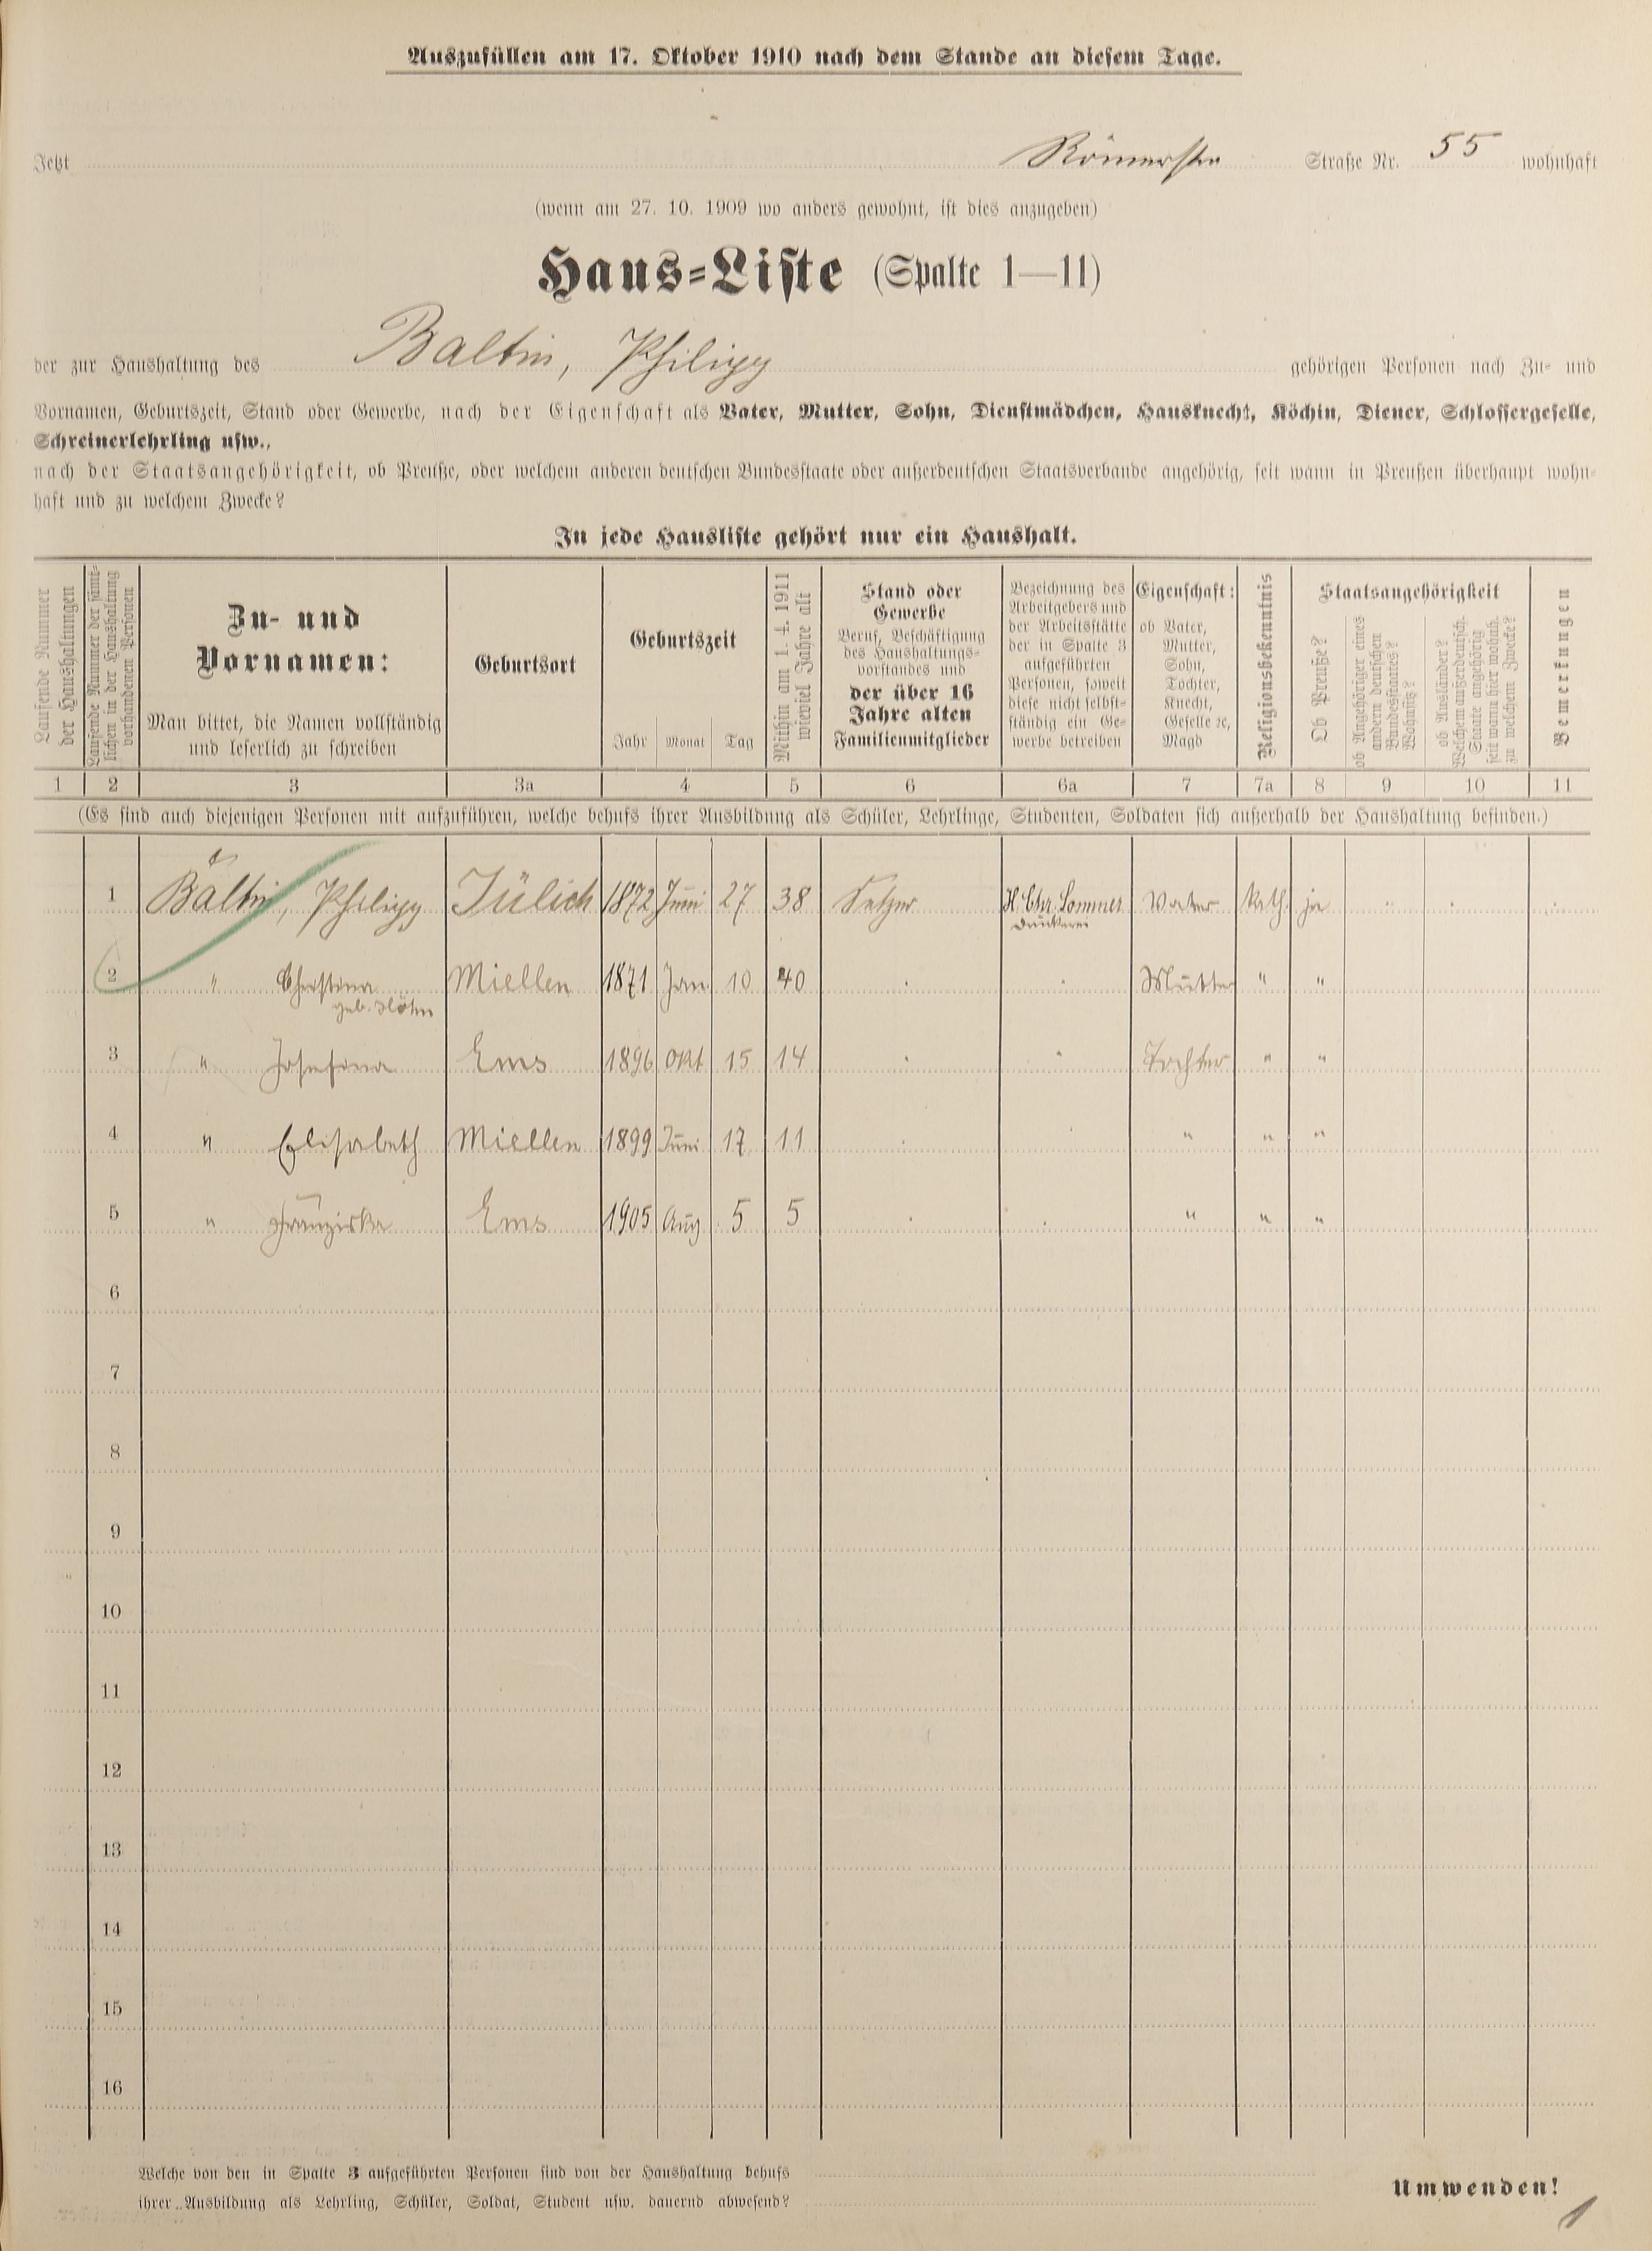 Auszufüllen am 17. Oktober 1910 nach dem Stande an diesem Tage.
Jetzt Römerstr Straße Nr. 55 wohnhaft
(wenn am 27. 10. 1909 wo anders gewohnt, ist dies anzugeben)
Haus-Liste (Spalte 1—11)
der zur Haushaltung des Baltin, Philipp gehörigen Personen nach Zu- und
Vornamen, Geburtszeit, Stand oder Gewerbe, nach der Eigenschaft als Vater, Mutter, Sohn, Dienstmädchen, Hausknecht, Köchin, Diener, Schlossergeselle,
Schreinerlehrling usw.,
nach der Staatsangehörigkeit, ob Preuße, oder welchem anderen deutschen Bundesstaate oder außerdeutschen Staatsverbande angehörig, seit wann in Preußen überhaupt wohn-
haft und zu welchem Zwecke?
In jede Hausliste gehört nur ein Haushalt.
Laufende Nummer
der Haushaltungen
Laufende Nummer der sämt-
lichen in der Haushaltung
vorhandenen Personen
Zu- und
Vornamen:
Man bittet, die Namen vollständig
und leserlich zu schreiben
Geburtsort
Geburtszeit
Jahr Monat Tag
Mithin am 1. 4. 1911
wieviel Jahre alt
Stand oder
Gewerbe
Beruf, Beschäftigung
des Haushaltungs-
vorstandes und
der über 16
Jahre alten
Familienmitglieder
Bezeichnung des
Arbeitgebers und
der Arbeitsstätte
der in Spalte 3
aufgeführten
Personen, soweit
diese nicht selbst-
ständig ein Ge-
werbe betreiben
Eigenschaft:
ob Vater,
Mutter,
Sohn,
Tochter,
Knecht,
Geselle ꝛc,
Magd
Religionsbekenntnis
Staatsangehörigkeit
Ob Preuße?
ob Angehöriger eines
andern deutschen
Bundesstaates?
Wohnsitz?
ob Ausländer?
Welchem außerdeutsch.
Staate angehörig
seit wann hier wohnh.
zu welchem Zwecke?
Bemerkungen
1 2 3 3a 4 5 6 6a 7 7a 8 9 10 11
(Es sind auch diejenigen Personen mit aufzuführen, welche behufs ihrer Ausbildung als Schüler, Lehrlinge, Studenten, Soldaten sich außerhalb der Haushaltung befinden.)
1 Baltin, Philipp Jülich 1872 Juni 27 38 Setzer H. Chr. Sommer Vater Kath. ja
Druckerei
2 " Christina Miellen 1871 Jan 10 40 Mutter " "
geb. Höhn
3 " Josefina Ems 1896 Okt 15 14 Tochter " "
4 " Elisabeth Miellen 1899 Juni 17 11 " " "
5 " Franziska Ems 1905 Aug 5 5 " " "
6
7
8
9
10
11
12
13
14
15
16
Welche von den in Spalte 3 aufgeführten Personen sind von der Haushaltung behufs
ihrer Ausbildung als Lehrling, Schüler, Soldat, Student usw. dauernd abwesend?
Umwenden!
1